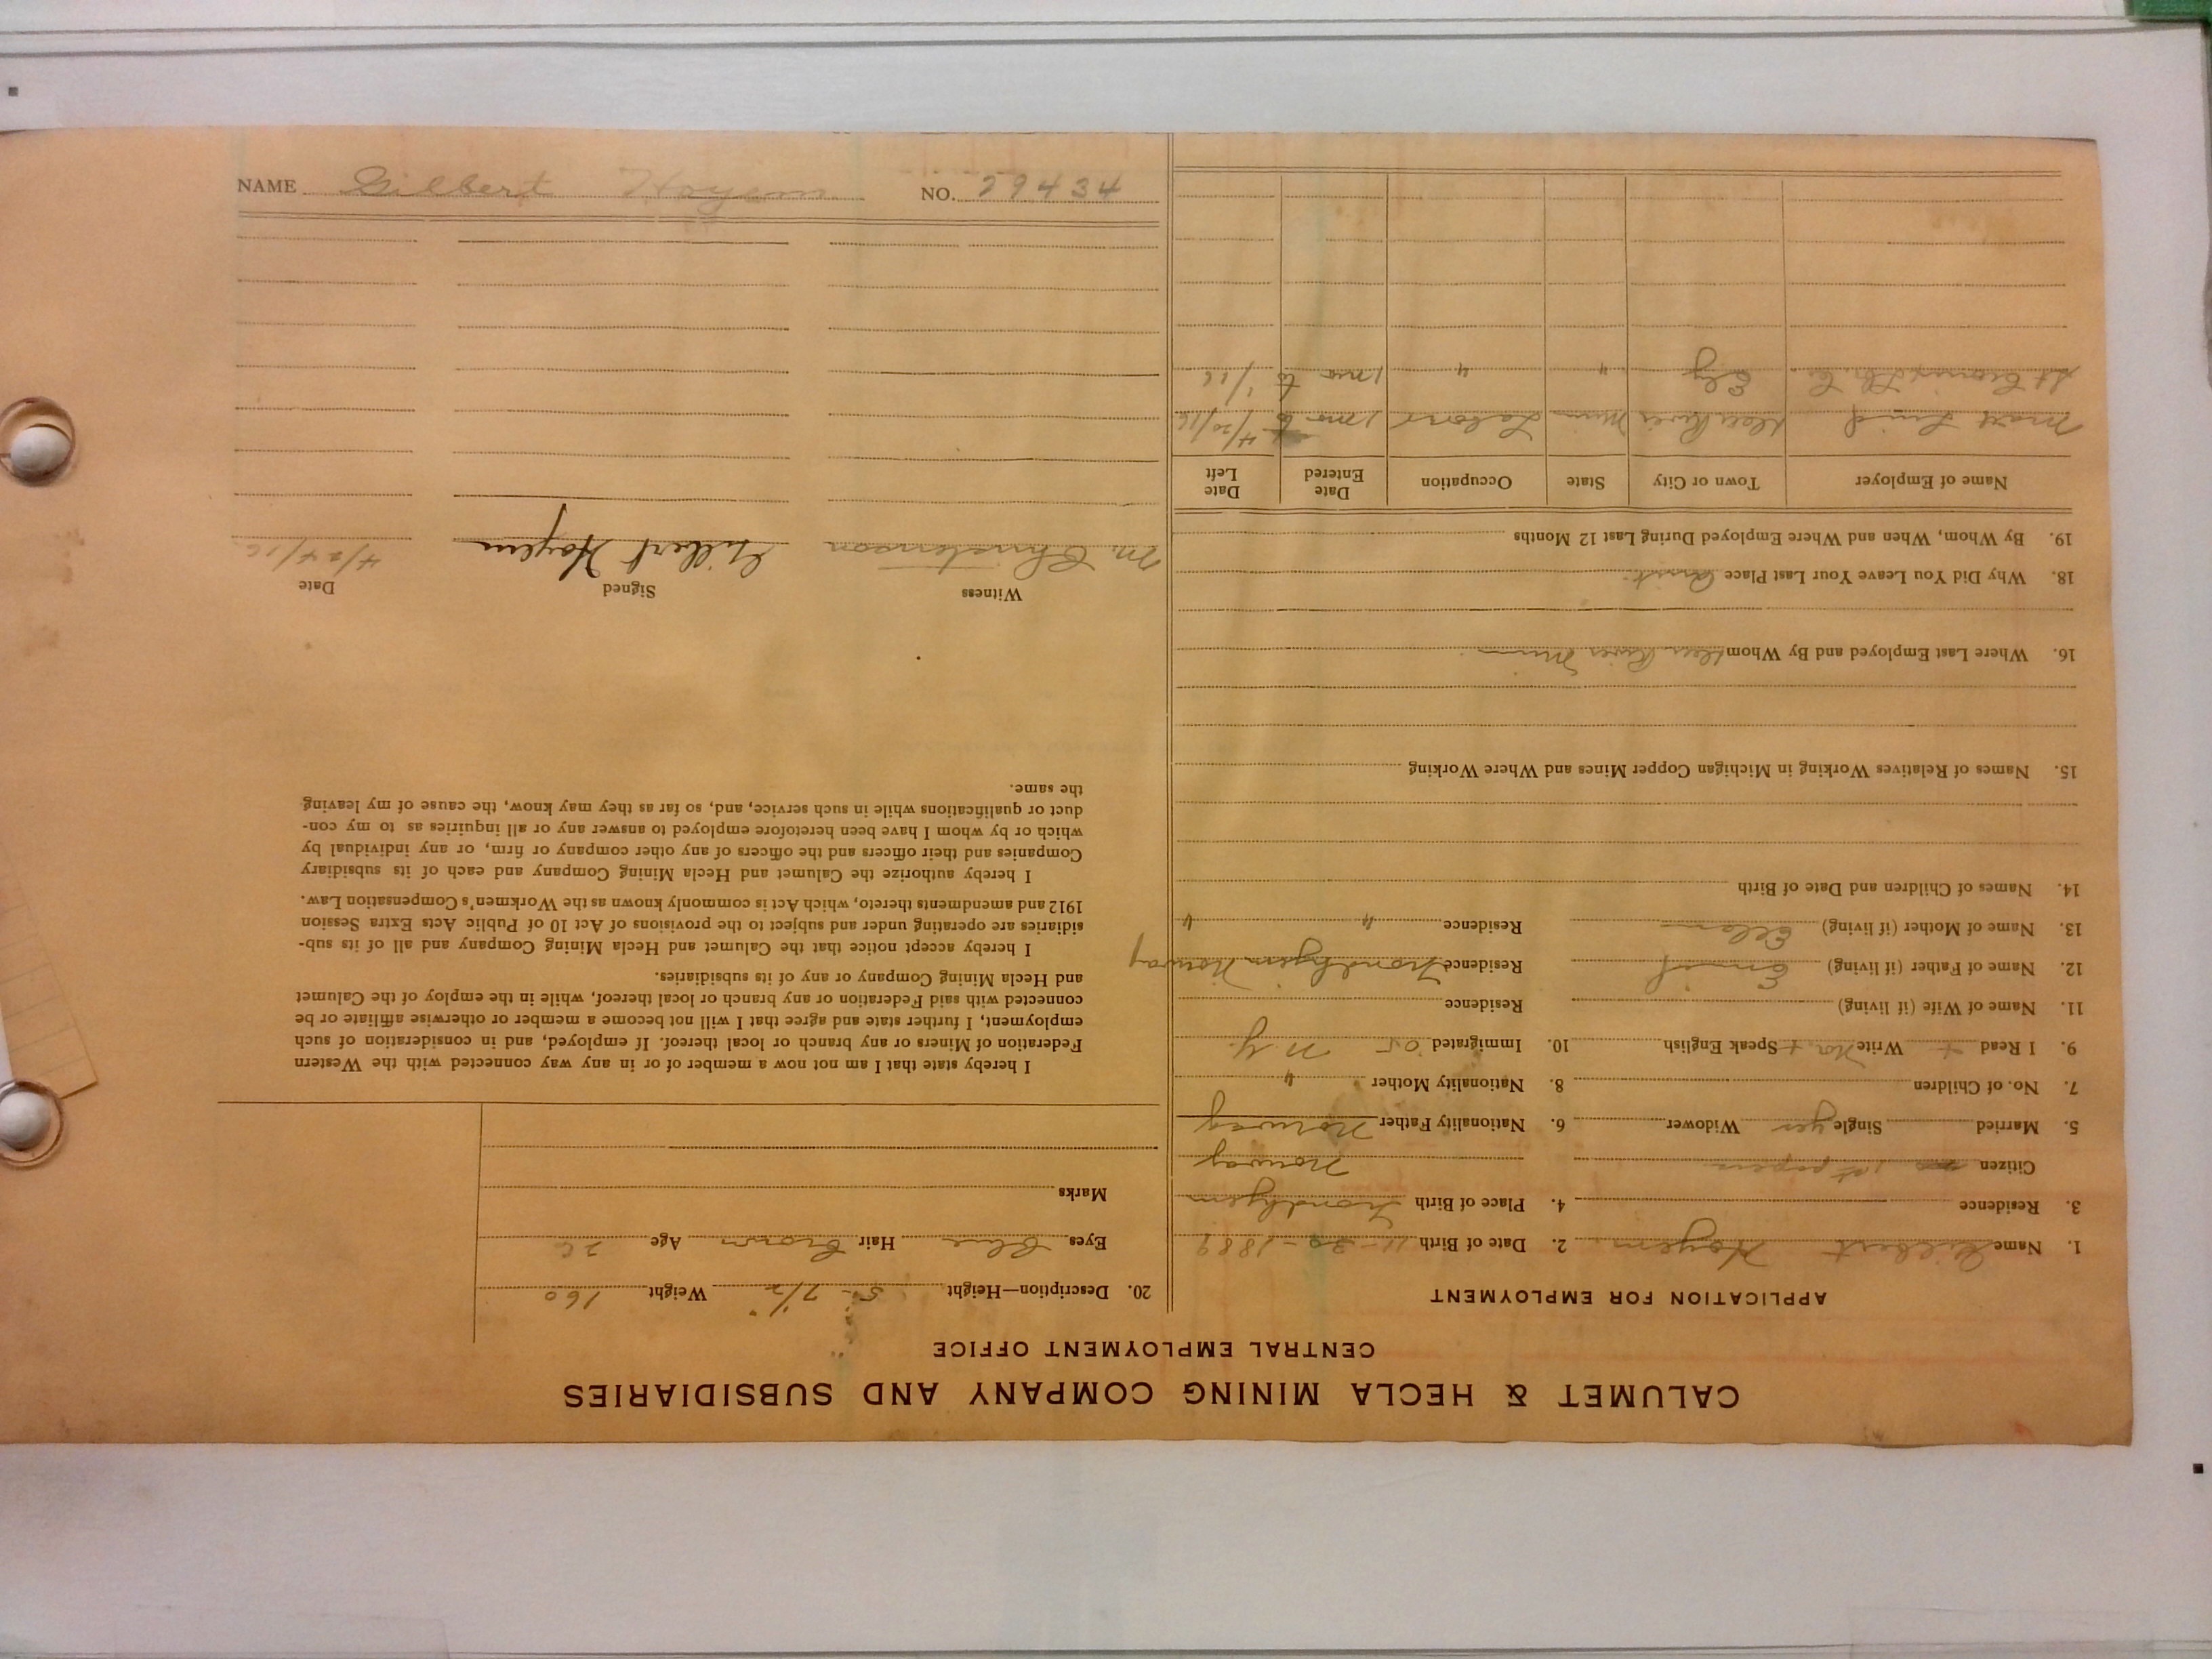 CALUMET & HECLA MINING COMPANY AND SUBSIDIARIES
CENTRAL EMPLOYMENT OFFICE
APPLICATION FOR EMPLOYMENT
1. Name Gilbert Hoyem 2. Date of Birth 11-30-1889
3. Residence 4. Place of Birth Trondhjem
Citizen 1st papers Norway
5. Married Single yes Widower 6. Nationality Father Norway
7. No. of Children 8. Nationality Mother "
9. I Read + Write Nor. + Speak English 10. Immigrated 05 N.Y.
11. Name of Wife (if living) Residence
12. Name of Father (if living) Emil Residence Trondhjem Norway
13. Name of Mother (if living) Ellen Residence " "
14. Names of Children and Date of Birth
15. Names of Relatives Working in Michigan Copper Mines and Where Working
16. Where Last Employed and By Whom Deer River Minn
18. Why Did You Leave Your Last Place Quit
19. By Whom, When and Where Employed During Last 12 Months
Name of Employer Town or City State Occupation Date Entered Date Left
Matt Lind Deer River Minn Labor 1 mo to 4/20/16
St Croix Lbr. Co. Ely " " 1 mo to 1/16
20. Description—Height 5-7 1/2" Weight 160
Eyes Blue Hair Brown Age 26
Marks
I hereby state that I am not now a member of or in any way connected with the Western
Federation of Miners or any branch or local thereof. If employed, and in consideration of such
employment, I further state and agree that I will not become a member or otherwise affiliate or be
connected with said Federation or any branch or local thereof, while in the employ of the Calumet
and Hecla Mining Company or any of its subsidiaries.
I hereby accept notice that the Calumet and Hecla Mining Company and all of its sub-
sidiaries are operating under and subject to the provisions of Act 10 of Public Acts Extra Session
1912 and amendments thereto, which Act is commonly known as the Workmen's Compensation Law.
I hereby authorize the Calumet and Hecla Mining Company and each of its subsidiary
Companies and their officers and the officers of any other company or firm, or any individual by
which or by whom I have been heretofore employed to answer any or all inquiries as to my con-
duct or qualifications while in such service, and, so far as they may know, the cause of my leaving
the same.
Witness Signed Date
M. Christenson Gilbert Hoyem 4/24/16
NAME Gilbert Hoyem NO. 29434